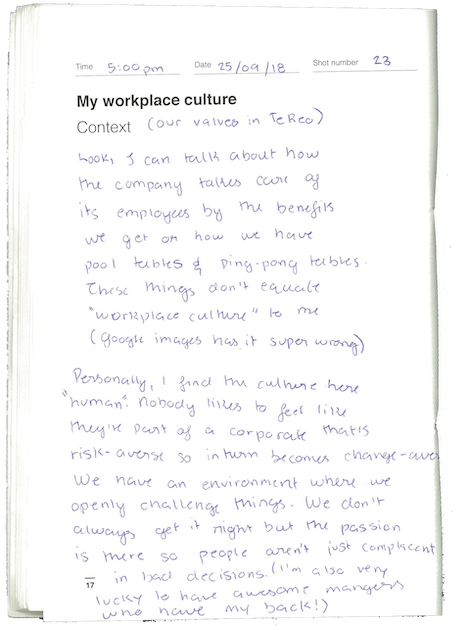 Time 5:00pm Date 25/09/18 Shot number 23
My workplace culture
Context (our values in Te Reo)
Look, I can talk about how
the company takes care of
its employees by the benefits
we get or how we have
pool tables & ping-pong tables.
These things don't equate
"workplace culture" to me
(google images has it super wrong)
Personally, I find the culture here
"human". Nobody likes to feel like
they're part of a corporate that's
risk-averse so in turn becomes change-aver
We have an environment where we
openly challenge things. We don't
always get it right but the passion
is there so people aren't just complacent
in bad decisions. (I'm also very
17
lucky to have awesome mangers
who have my back!)